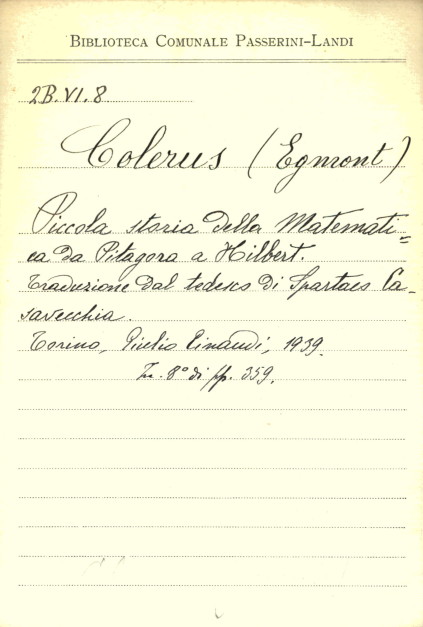 BIBLIOTECA COMUNALE PASSERINI-LANDI
2B.VI.8
Colerus (Egmont)
Piccola storia della Matemati=
ca da Pitagora a Hilbert.
Traduzione dal tedesco di Spartaco Ca-
savecchia.
Torino, Giulio Einaudi, 1939.
In-8° di pp. 359.